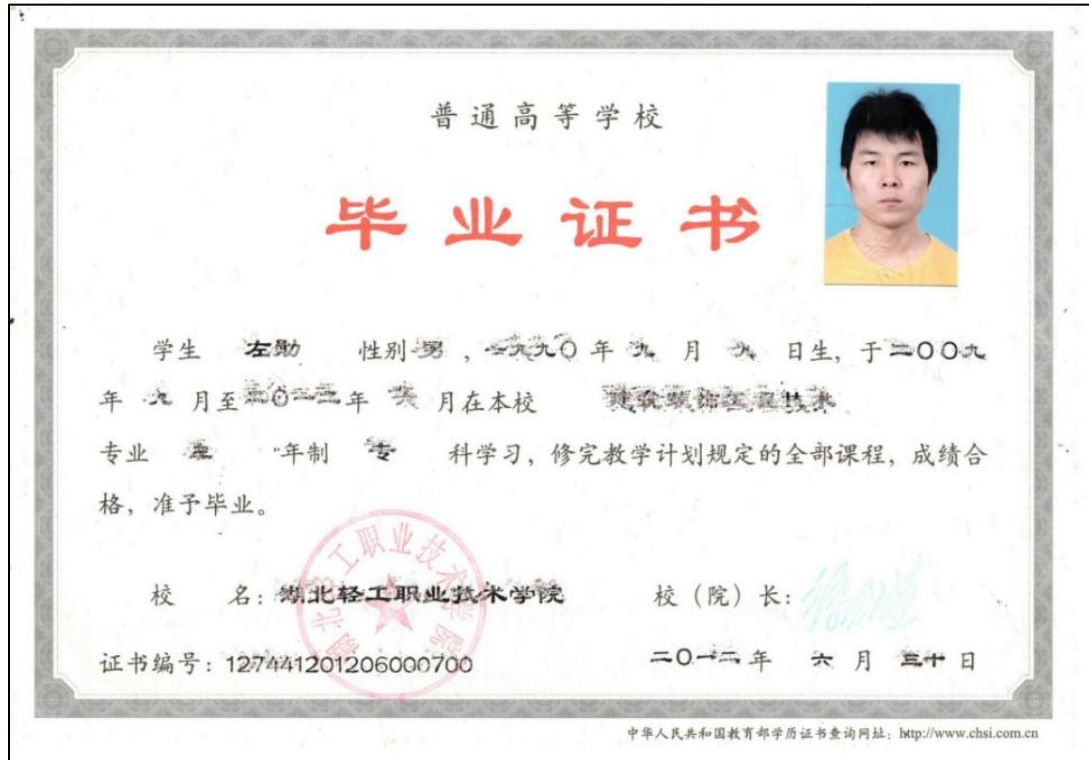 普通高等学校
毕业证书
学生 左勋 性别 男，一九九〇年 九 月 九 日生，于二〇〇九
年 九 月至二〇一二年 六 月在本校 建筑装饰工程技术
专业 三 年制 专 科学习，修完教学计划规定的全部课程，成绩合
格，准予毕业。
湖北轻工职业技术学院
校 名：湖北轻工职业技术学院 校（院）长：
证书编号：127441201206000700 二〇一二年 六 月 三十 日
中华人民共和国教育部学历证书查询网址：http://www.chsi.com.cn